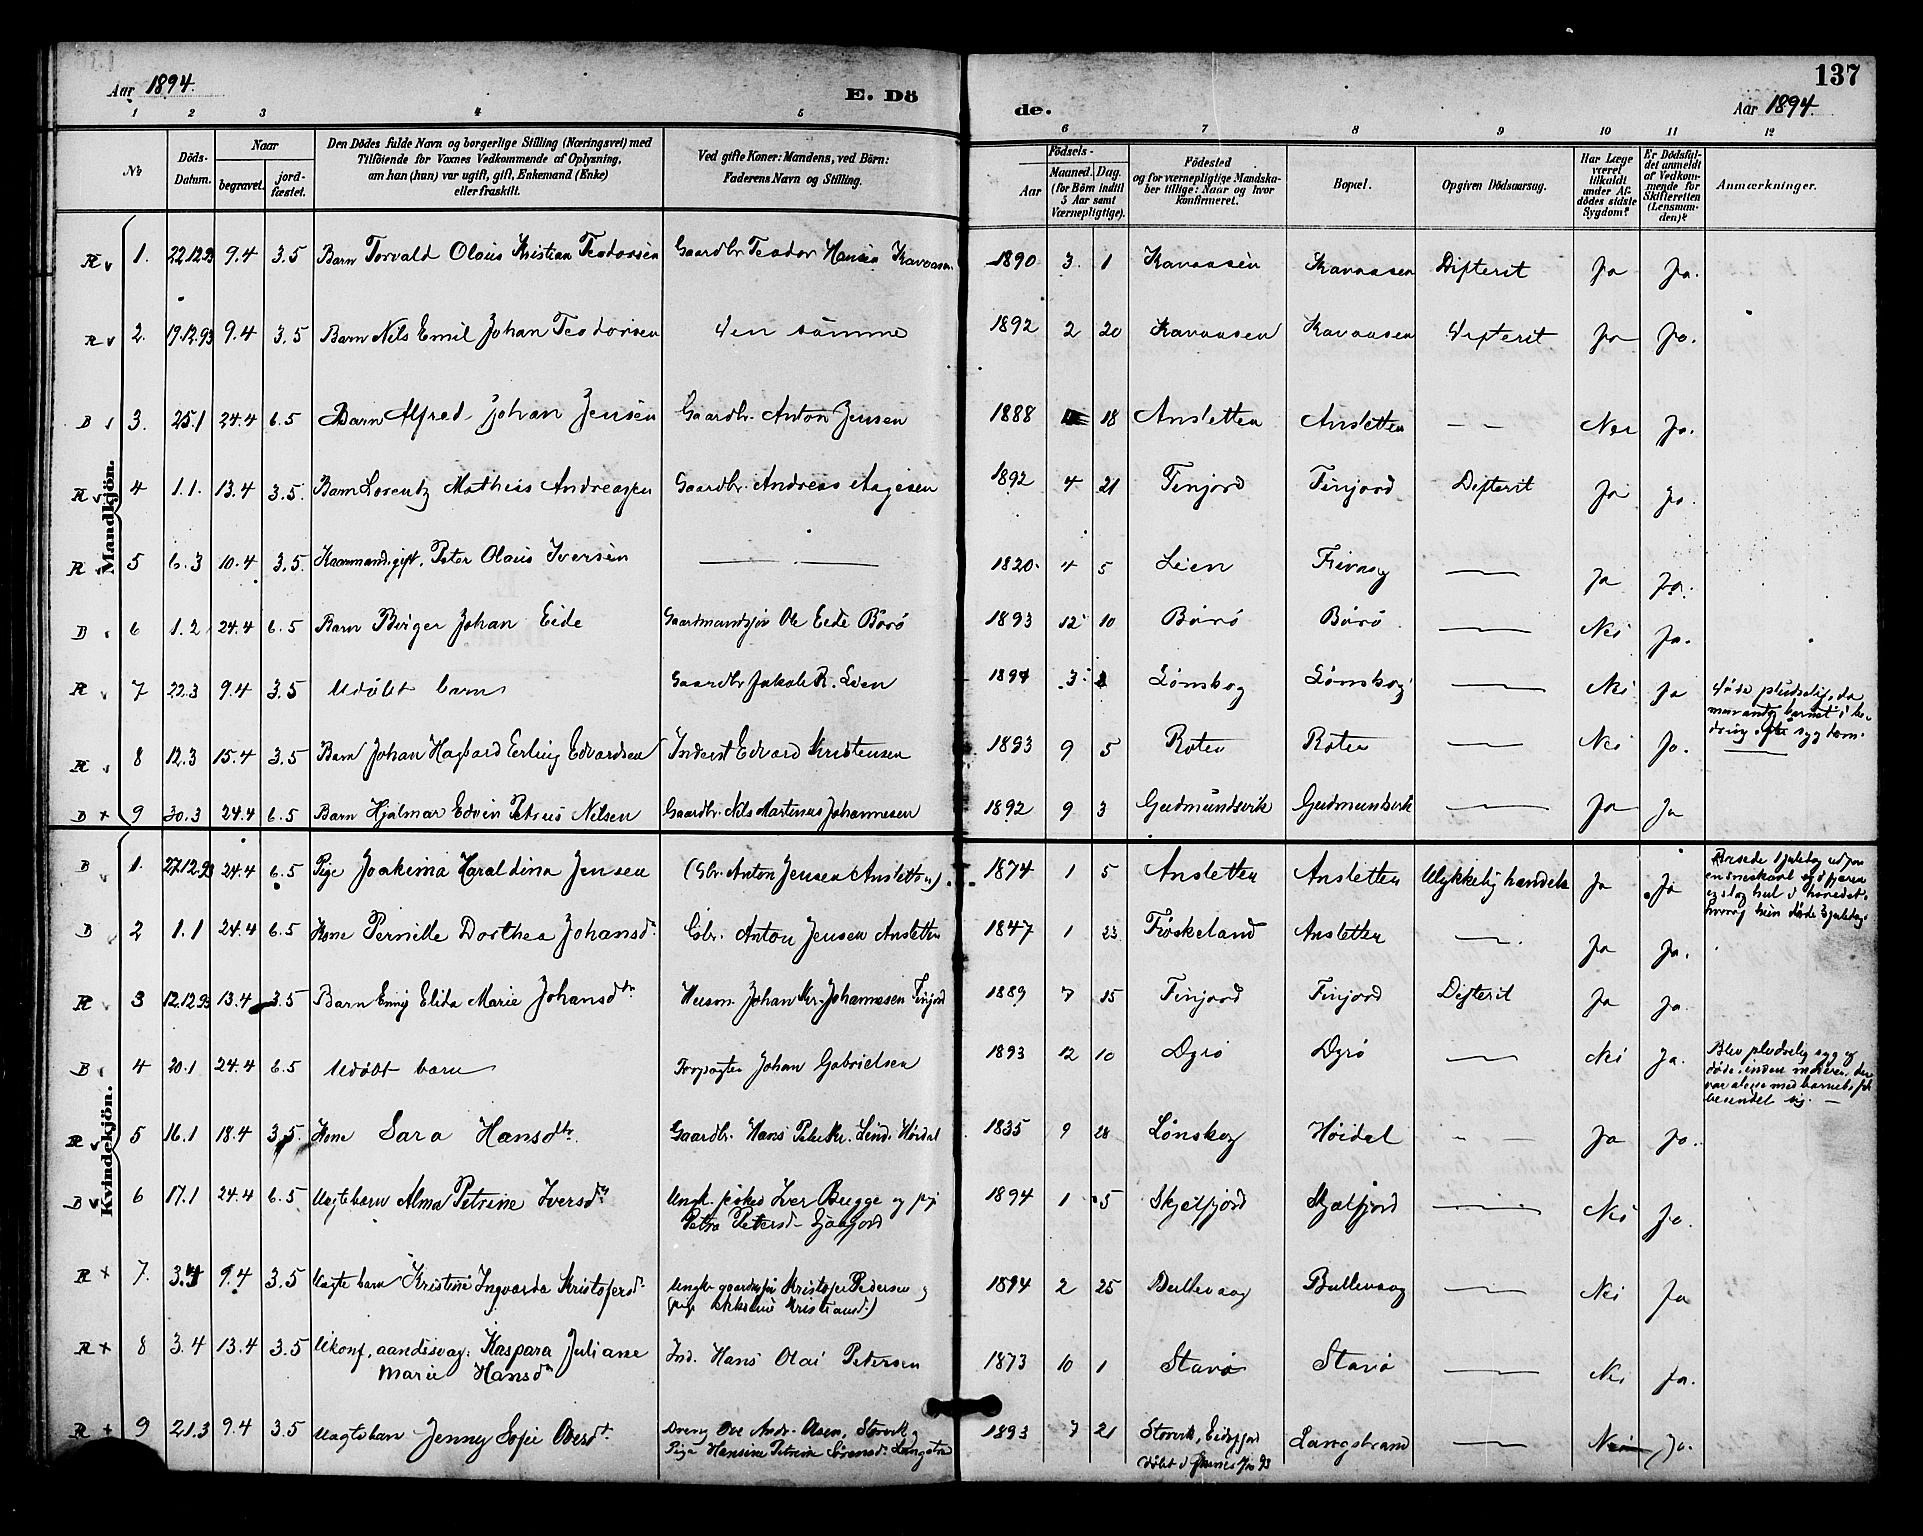 Aar 1894.
E. Döde.
137
Aar 1894.
1 2 3 4 5 6 7 8 9 10 11 12
No
Döds-Datum.
Naar
begravet.
jord-fæstet.
Den Dödes fulde Navn og borgerlige Stilling (Næringsvei) med
Tilföiende for Voxnes Vedkommende af Oplysning,
om han (hun) var ugift, gift, Enkemand (Enke)
eller fraskilt.
Ved gifte Koner: Mandens, ved Börn:
Faderens Navn og Stilling.
Födsels-
Aar
Maaned. Dag.
(for Börn indtil
5 Aar samt
Værnepligtige).
Födested
og for værnepligtige Mandska-
ber tillige: Naar og hvor
konfirmeret.
Bopæl.
Opgiven Dödsaarsag.
Har Læge
været
tilkaldt
under Af-
dödes sidste
Sygdom?
Er Dödsfal-
det anmeldt
af Vedkom-
mende for
Skifteretten
(Lensman-
den)?
Anmærkninger.
Mandkjön.
R 1. 22.12.93 9.4 3.5 Barn Torvald Olaus Kristian Teodorsen Gaardbr. Teodor Hansen Kavaasen 1890 3 1 Kavaasen Kavaasen Difterit Ja Ja.
R 2. 19.12.93 9.4 3.5 Barn Nils Emil Johan Teodorsen den samme 1892 2 20 Kavaasen Kavaasen Difterit Ja Ja.
B 3. 25.1 24.4 6.5 Barn Alfred Johan Jensen Gaardbr. Anton Jensen 1888 18 Ansletten Ansletten — — Nei Ja.
R 4 1.1. 13.4 3.5. Barn Lorentz Matheus Andreassen Gaardbr. Andreas Aagesen 1892 4 21 Finjord Finjord Difterit Ja Ja.
R 5 6.3 10.4 3.5. Kaarmand, gift. Peter Olaus Iversen — — 1820. 4 5 Leien — Ja Ja.
B 6 1.2 24.4 6.5 Barn Birger Johan Eide Ole Eide Börö 1893 12 10 Börö Börö — Nei Ja.
R 7 22.3 9.4 3.5 Udöbt barn Gaardbr. Jakob R. Leen 1894 3 Lönskog Lönskog — Nei Ja
Döde pludselig, da
man antog barnet i be-
dring efter sygdom.
R 8 12.3 15.4 3.5 Barn Johan Hagbard Erling Edvardsen Inderst Edvard Kristensen 1893 9 5 Roten Roten — Nei Ja.
B + 9 30.3 24.4 6.5 Barn Hjalmar Edvin Petrus Nilsen Gaardbr. Nils Martinus Johannesen 1892 9 3 Gudmundsvik Gudmundsvik — Ja Ja
Kvindekjön.
B 1. 27.12.93 24.4 6.5 Pige Joakima Haraldina Jensen (Gbr. Anton Jensen Ansletten). 1874 1 5 Ansletten Ansletten Ulykkelig hændelse Ja Ja
en sneskavl og i fjæren
og slog hul i hovedet,
hvoraf hun döde 3 juledag.
B 2 1.1 24.4 6.5 Kone Pernille Dorthea Johansdtr. Gbr. Anton Jensen Ansletten 1847 1 23 Fiskeland Ansletten — Ja Ja.
R 3 12.12.93 13.4 3.5 Barn Emij Elida Marie Johansdtr Huusm. Johan Kr. Johannesen Finjord 1889 7 15 Finjord Finjord Difterit Ja Ja.
B 4 20.1 24.4 6.5 Udöbt barn Johan Gabrielsen 1893 12 10 Dyrö Dyrö — Nei Ja.
Blev pludselig syg og
döde, inden moderen, der
var alene med barnet, fik
besindet sig. —
R 5 16.1 18.4 3.5. Kone Sara Hansdtr. Gaardbr. Hans Peter Kr. Lind, Höidal 1835 9 28 Lönskog Höidal — Ja Ja.
B 6 17.1 24.4 6.5 Uægte barn Alma Petrine Iversdtr Ungk. fisker Iver Bugge og pige
Petra Petersd. 1894 1 5 Skjelfjord Skjelfjord — Nei Ja.
R + 7. 3.4 9.4 3.5 Uægte barn Kristine Ingvarda Kristofersdr Ungk. Kristofer Pedersen og
pige Kristiansd.) 1894 2 25 Bullevaag Bullevaag — Nei Ja
R + 8 3.4 13.4 3.5 Ukonf., aandssvag, Kaspara Juliane
Marie Hansdtr Ind. Hans Olai Petersen 1873 10 1 Starö Starö — Nei Ja.
R + 9 21.3 9.4 3.5 Uægte barn Jenny Sofie Ovesdtr Dreng Ove Andr. Olsen, Storvik og
Pige Hansine Petrine Sörensdr Langstra 1893 7 21 Storvik, Eidsfjord Langstrand — Nei Ja.